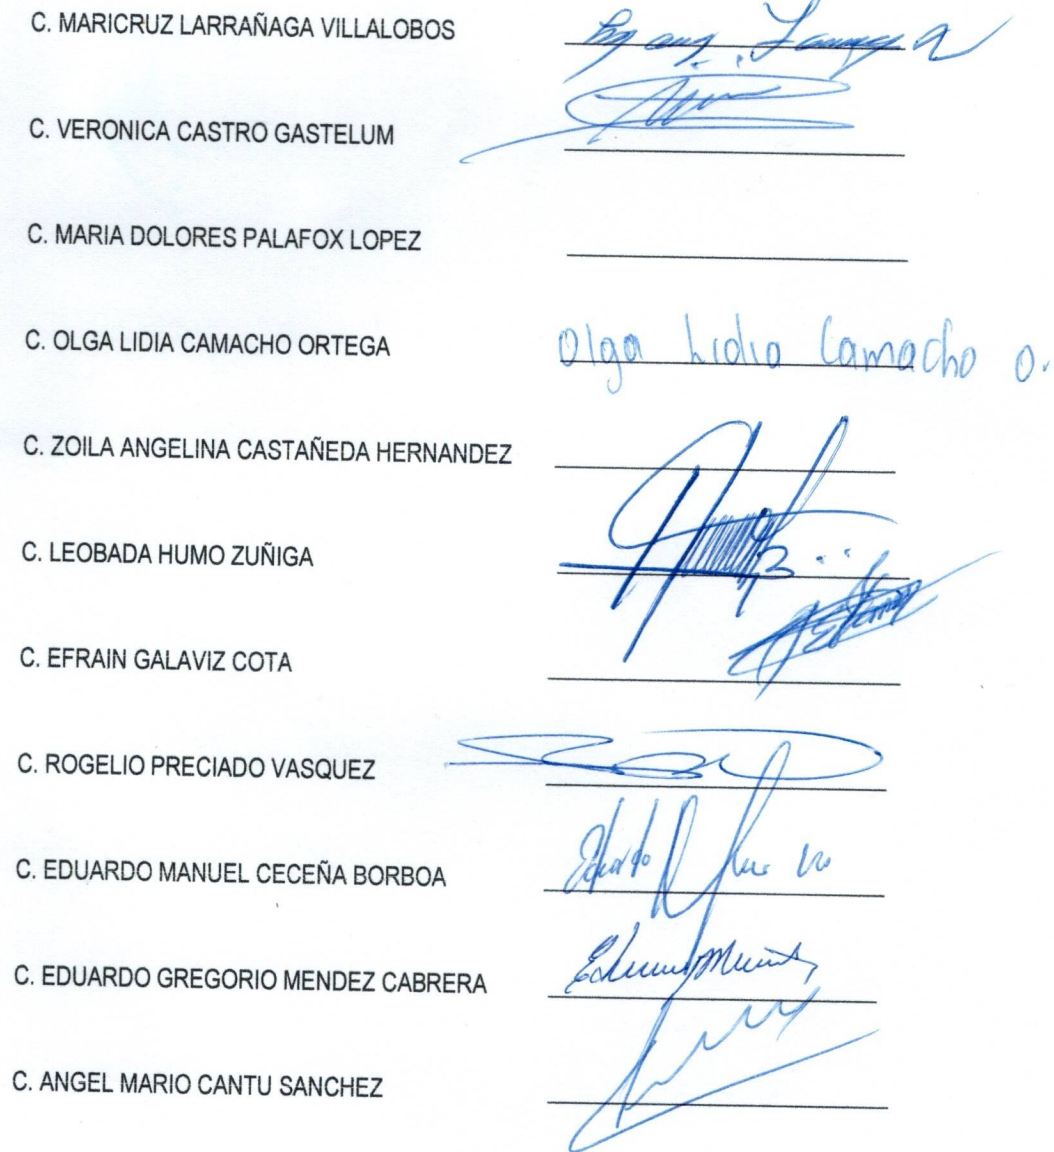 C. MARICRUZ LARRAÑAGA VILLALOBOS
C. VERONICA CASTRO GASTELUM
C. MARIA DOLORES PALAFOX LOPEZ
C. OLGA LIDIA CAMACHO ORTEGA Olga Lidia Camacho O.
C. ZOILA ANGELINA CASTAÑEDA HERNANDEZ
C. LEOBADA HUMO ZUÑIGA
C. EFRAIN GALAVIZ COTA
C. ROGELIO PRECIADO VASQUEZ
C. EDUARDO MANUEL CECEÑA BORBOA Eduardo
C. EDUARDO GREGORIO MENDEZ CABRERA
C. ANGEL MARIO CANTU SANCHEZ